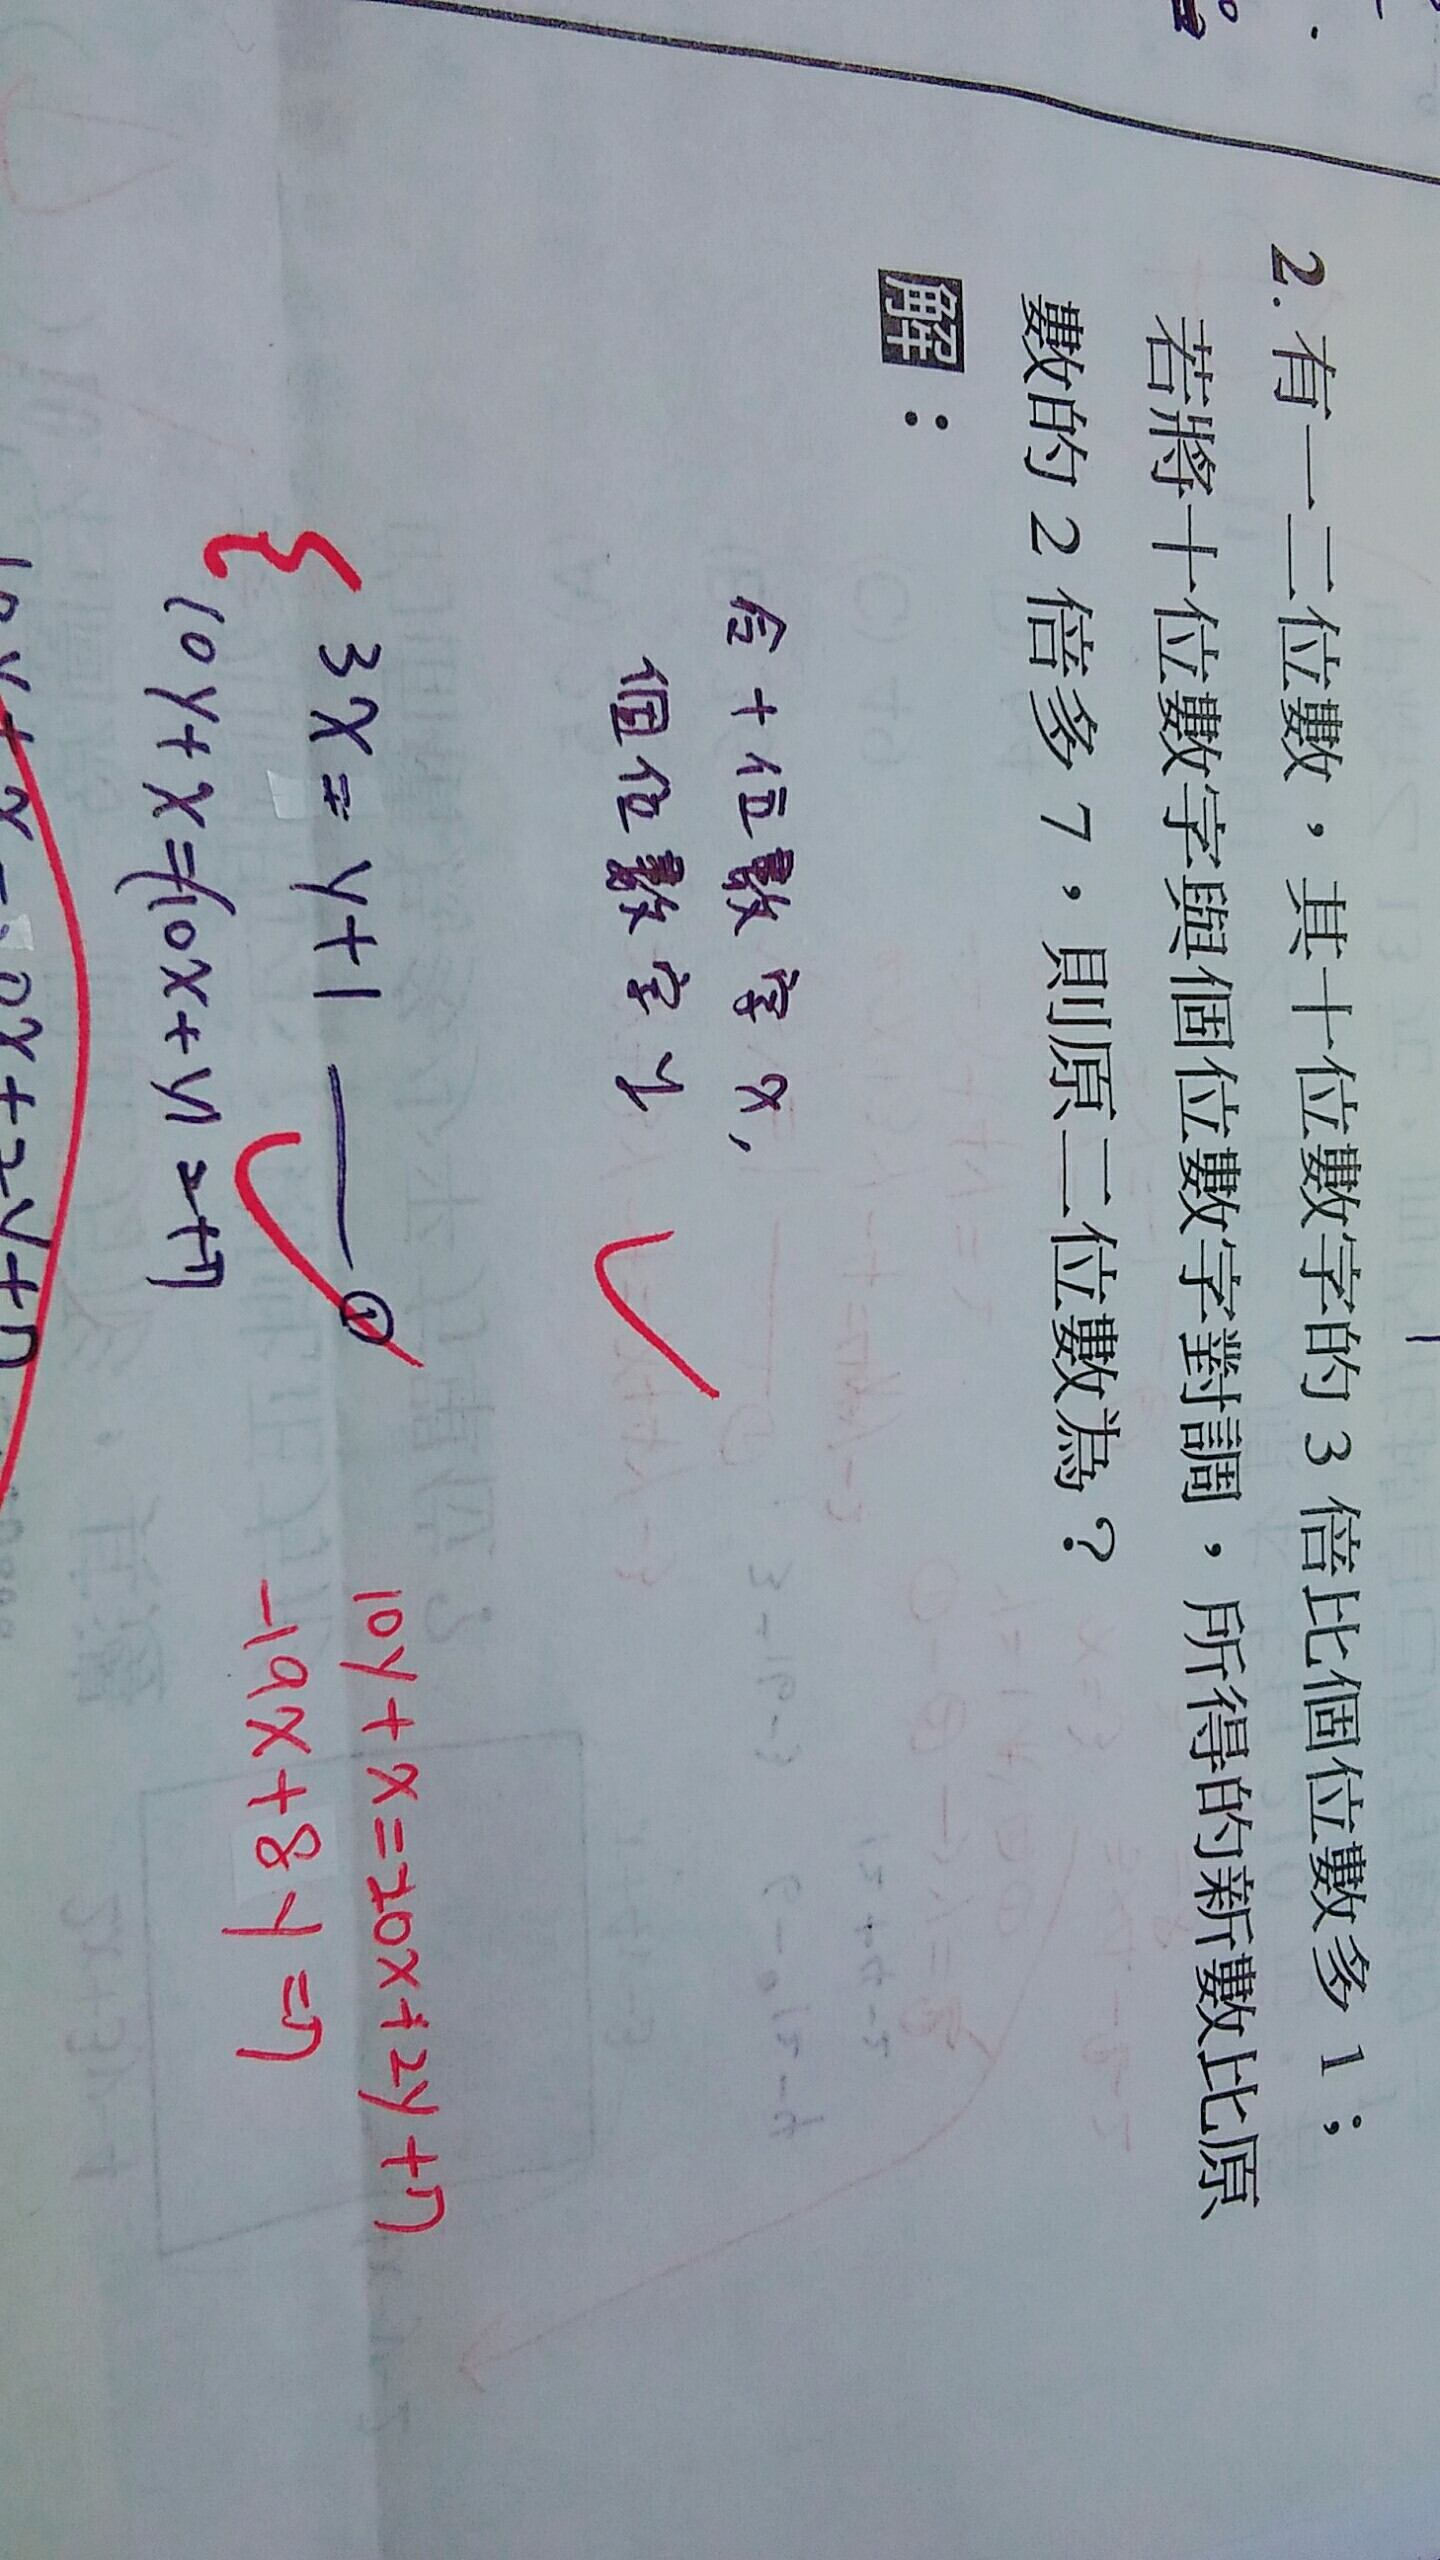 2. 有一二位數，其十位數字的 3 倍比個位數多 1；
若將十位數字與個位數字對調，所得的新數比原
數的 2 倍多 7，則原二位數為？
解：
令十位數字 x,
個位數字 y
3x = y+1 ①
10y+x=(10x+y)2+7
10y+x=20x+2y+7
-19x+8y=7